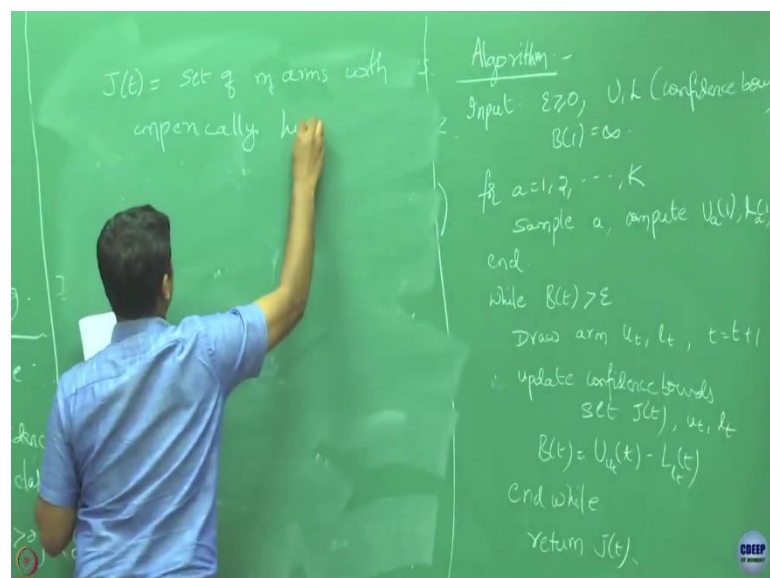 J(t) = set of m arms with
empenically hi
Algorithm :-
Input: ε≥0, U, L (confidence bou
B(1) = ∞.
for a=1,2, ..., K
Sample a, compute Ua(1), La(1)
end.
while B(t) > ε
Draw arm ut, lt, t=t+1
update confidence bounds
set J(t), ut, lt
B(t) = Uut(t) - Llt(t)
end while
return J(t).
dence
clas
CDEEP
IIT BOMBAY